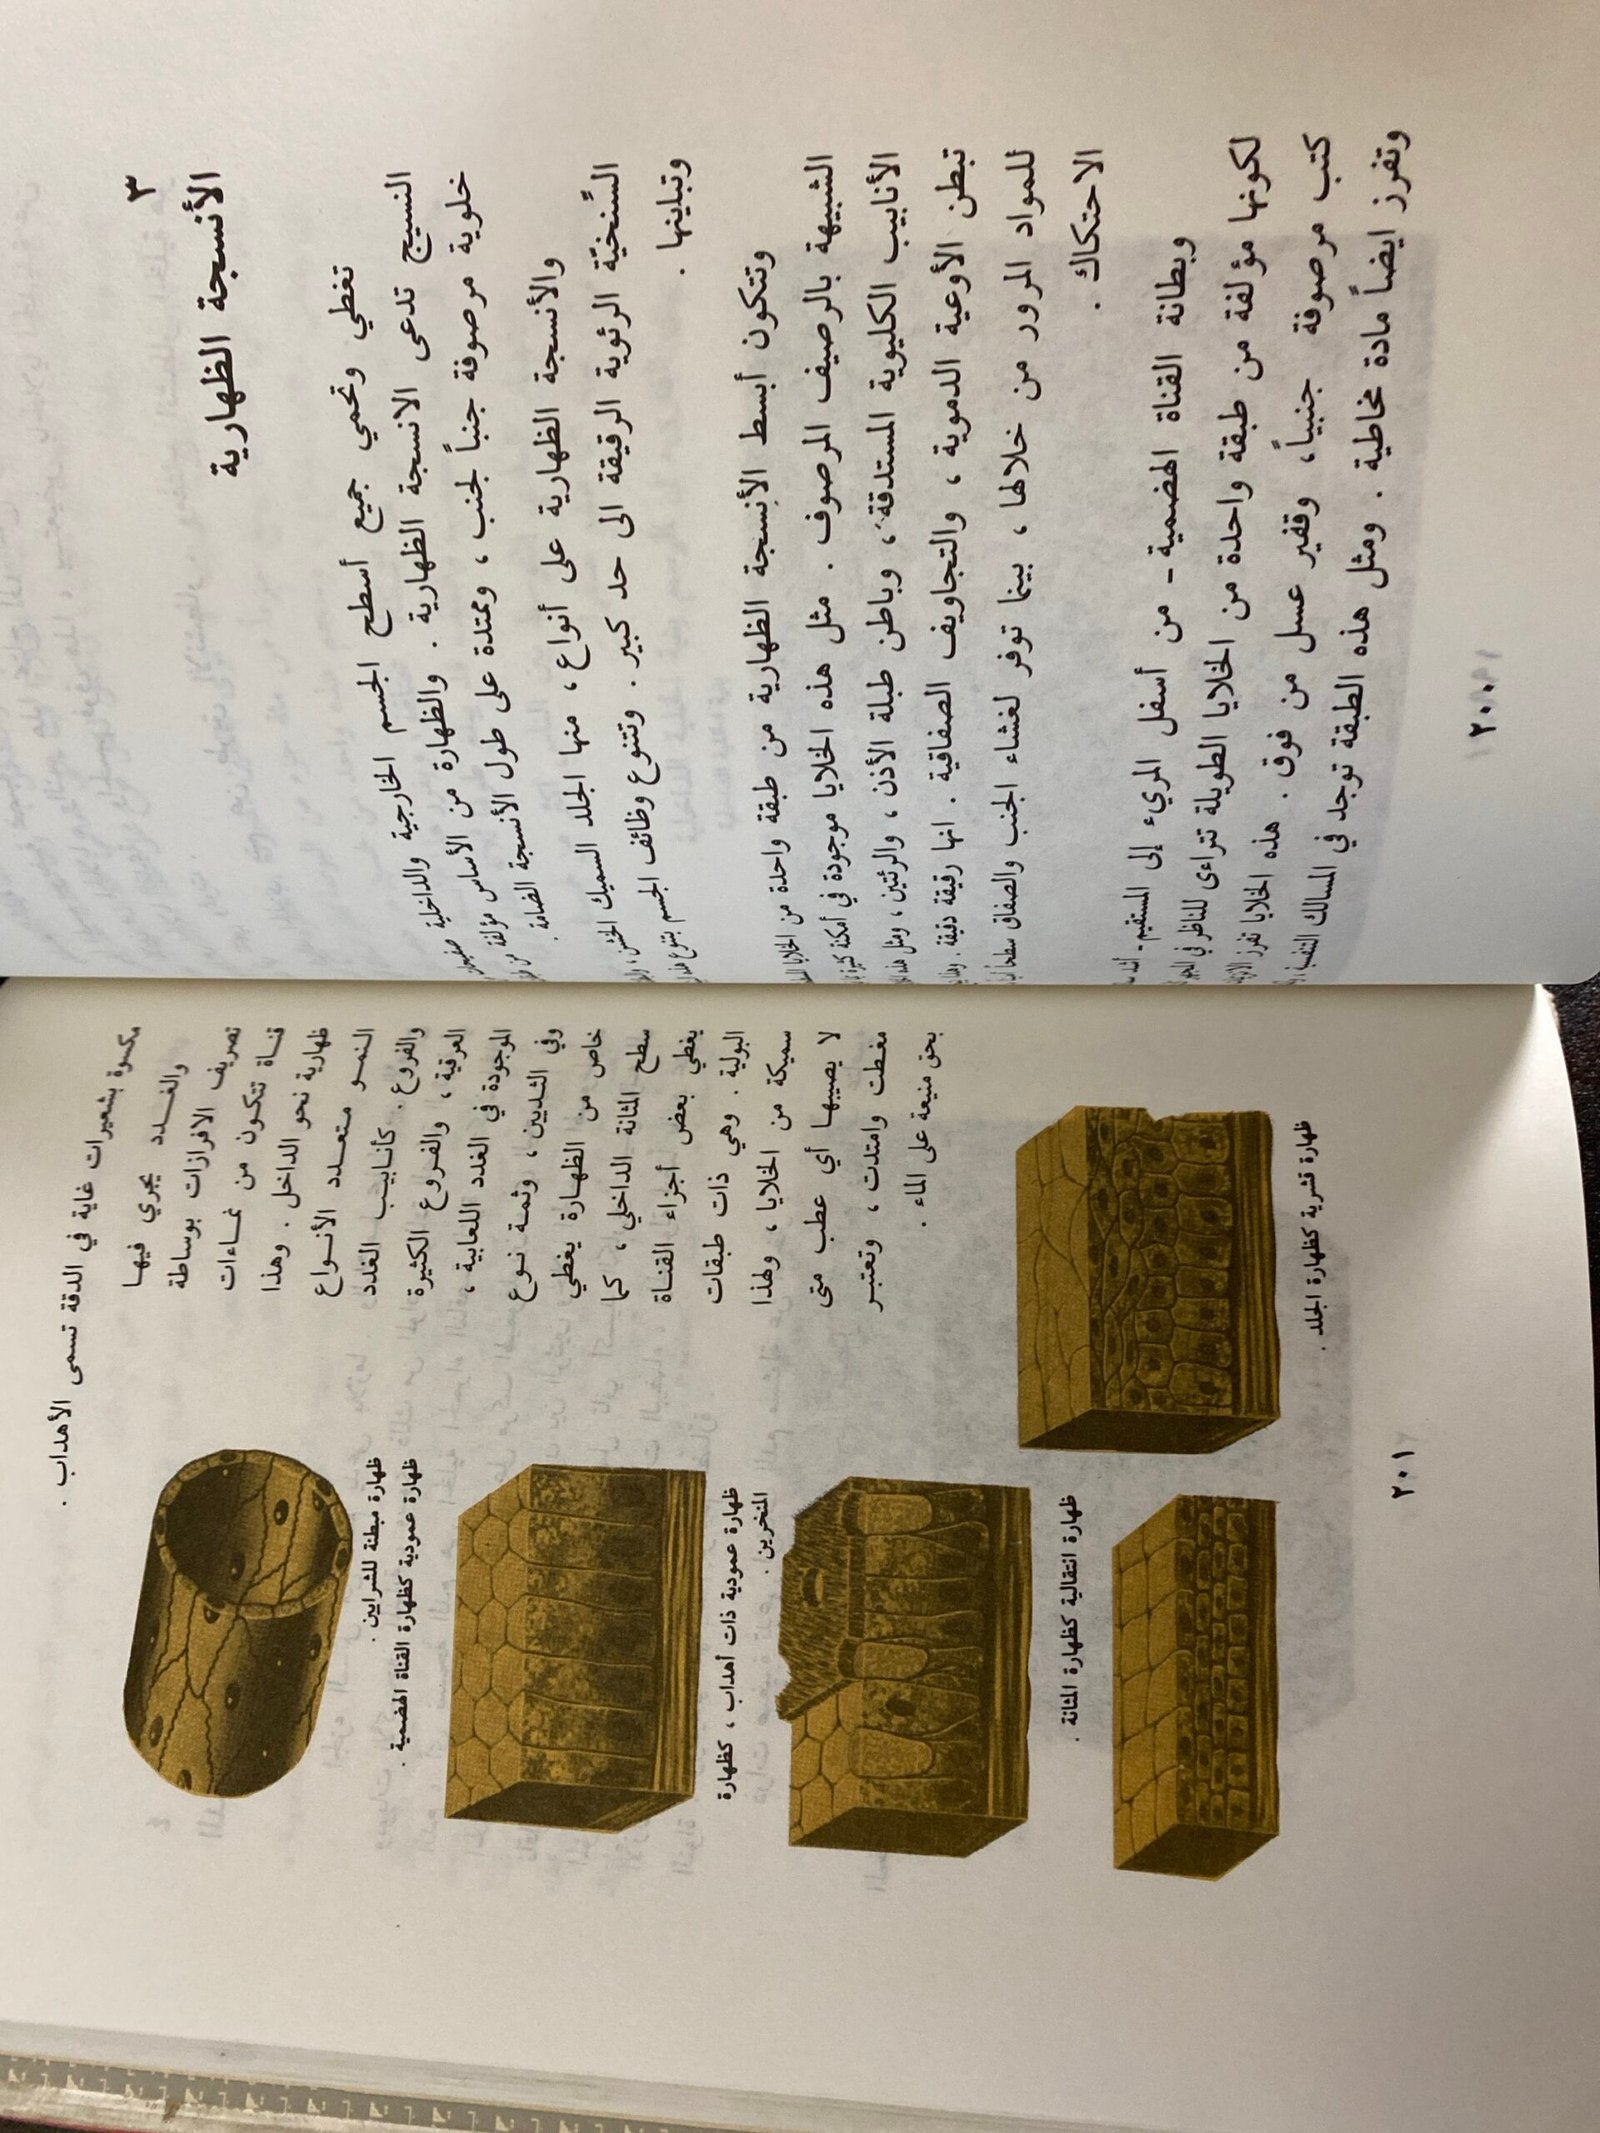 ٣
الأنسجة الظهارية
تغطي وتحمي جميع أسطح الجسم الخارجية والداخلية
النسيج تدعى الانسجة الظهارية . والظهارة من الأساس مؤلفة من
خلوية مرصوفة جنباً لجنب ، وممتدة على طول الأنسجة الضامة .
والأنسجة الظهارية على أنواع ، منها الجلد السميك الخشن ،
السِّنخيَّة الرئوية الرقيقة الى حد كبير . وتتنوع وظائف الجسم بتنوع
وتباينها .
وتتكون أبسط الأنسجة الظهارية من طبقة واحدة من الخلايا
الشبيهة بالرصيف المرصوف . مثل هذه الخلايا موجودة في أمكنة كثيرة
الأنابيب الكليوية المستدقة ، وباطن طبلة الأذن ، والرئتين ، ومثل هذه
تبطن الأوعية الدموية ، والتجاويف الصفاقية . انها رقيقة دقيقة .
للمواد المرور من خلالها ، بينما توفر لغشاء الجنب والصفاق سطحاً
الاحتكاك .
وبطانة القناة الهضمية - من أسفل المريء إلى المستقيم -
لكونها مؤلفة من طبقة واحدة من الخلايا الطويلة تتراءى للناظر في
كتب مرصوفة جنبياً ، وقفير عسل من فوق . هذه الخلايا تفرز
وتفرز ايضاً مادة مخاطية . ومثل هذه الطبقة توجد في المسالك التنفسية
٢٠٠
مكسوة بشعيرات غاية في الدقة تسمى الأهداب .
والغدد يجري فيها
تصريف الافرازات بوساطة
قناة تتكون من نماءات
ظهارية نحو الداخل . وهذا
النمو متعدد الأنواع
والفروع . كأنابيب الغدد
العرقية ، والفروع الكثيرة
الموجودة في الغدد اللعابية ،
وفي الثديين ، وثمة نوع
خاص من الظهارة يغطي
سطح المثانة الداخلي ، كما
يغطي بعض أجزاء القناة
البولية . وهي ذات طبقات
سميكة من الخلايا ، ولهذا
لا يصيبها أي عطب متى
مغطت وامتدت ، وتعتبر
بحق منيعة على الماء .
ظهارة مبطنة للشرايين .
ظهارة عمودية كظهارة القناة الهضمية .
ظهارة عمودية ذات أهداب ، كظهارة
المنخرين .
ظهارة انتقالية كظهارة المثانة .
ظهارة قشرية كظهارة الجلد .
٢٠١